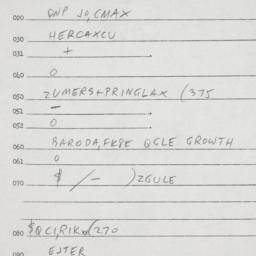 020 QNP JO, CMAX
030 HERCAXCU
031 +
040 0
050 ZUMERS+PRINGLAX (375
051 —
052 0
060 BARODA, FKPE QGLE GROWTH
061 0
070 $ /— )ZGULE
080 $QCI, RIK (270
090 ESTER